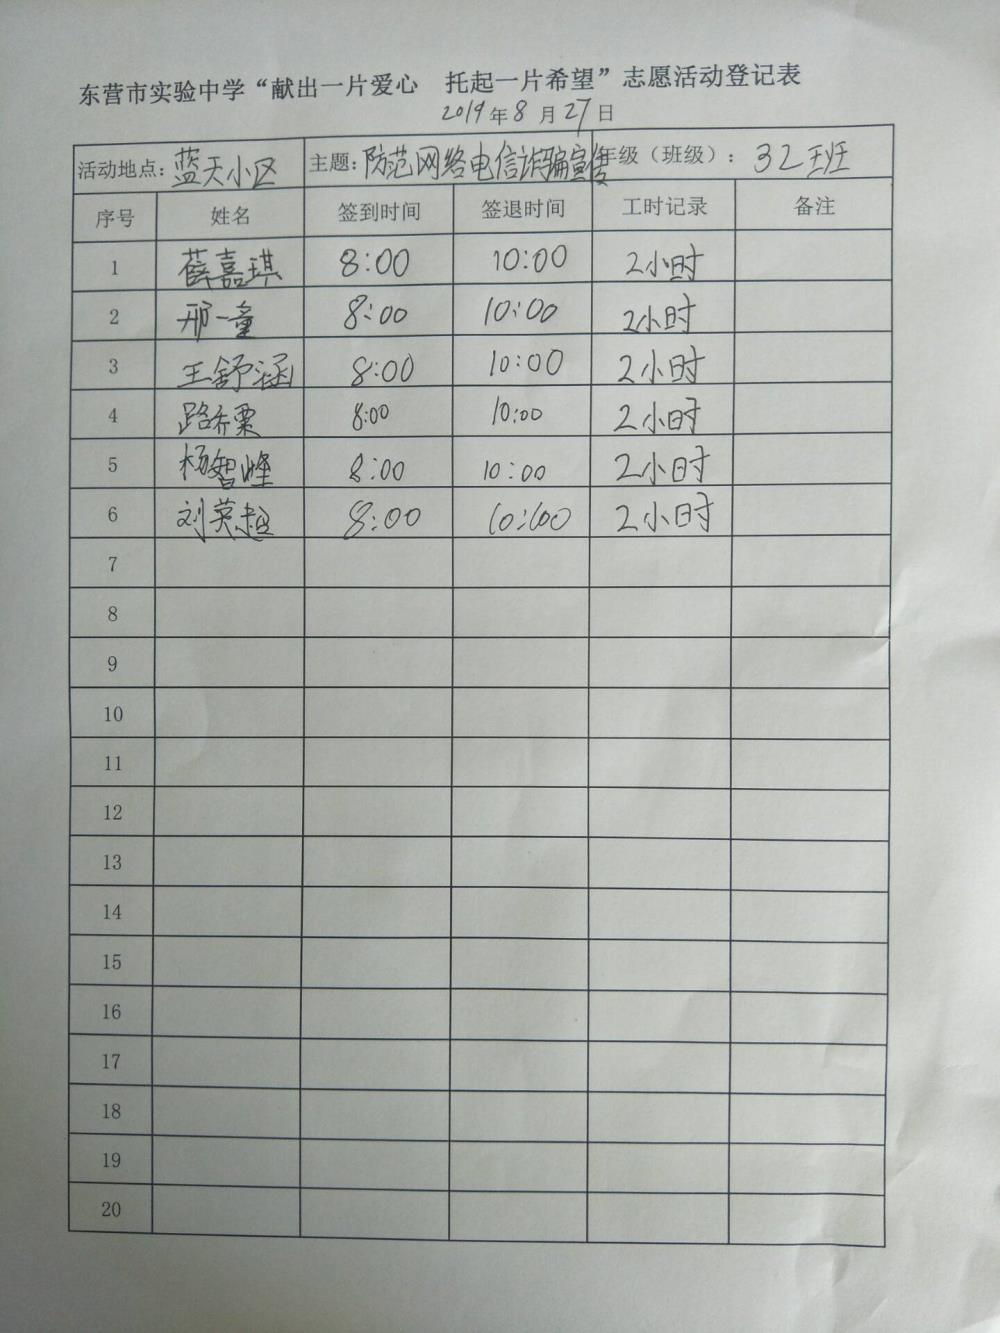 东营市实验中学“献出一片爱心　托起一片希望”志愿活动登记表
2019年8月27日
活动地点：蓝天小区 主题：防范网络电信诈骗宣传 年级（班级）：32班
序号 姓名 签到时间 签退时间 工时记录 备注
1 薛嘉琪 8:00 10:00 2小时
2 邢一童 8:00 10:00 2小时
3 王舒涵 8:00 10:00 2小时
4 路乔栗 8:00 10:00 2小时
5 杨智峰 8:00 10:00 2小时
6 刘英超 8:00 10:00 2小时
7
8
9
10
11
12
13
14
15
16
17
18
19
20